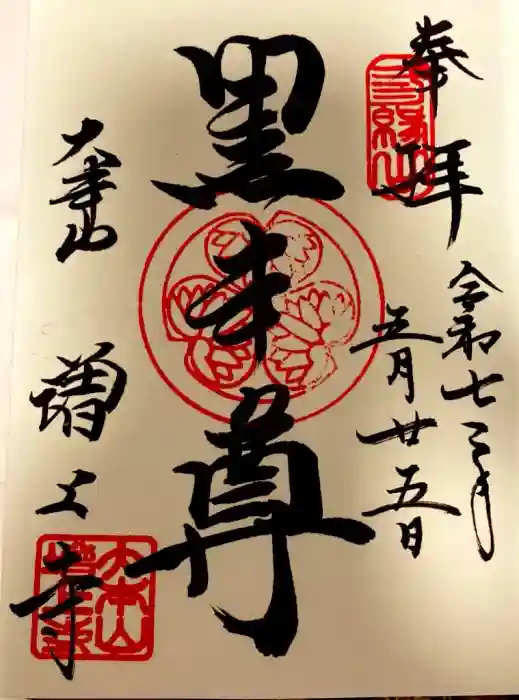 奉拝
三縁山
令和七年
五月廿五日
黒本尊
大本山
増上寺
大本山
増上寺